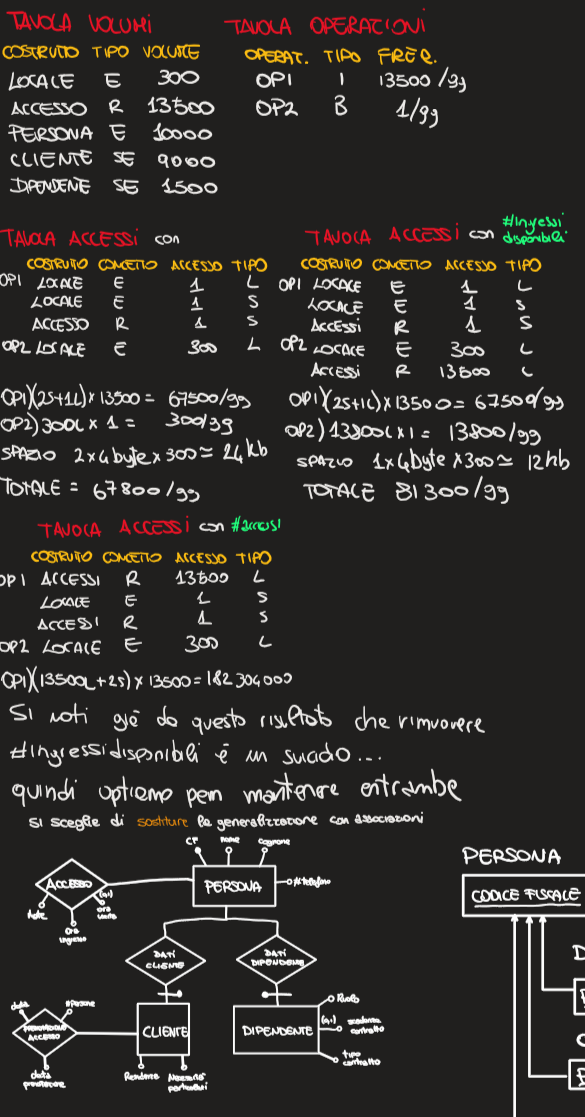 TAVOLA VOLUMI
COSTRUTTO TIPO VOLUME
LOCALE E 300
ACCESSO R 13500
PERSONA E 10000
CLIENTE SE 9000
DIPENDENE SE 1500
TAVOLA OPERAZIONI
OPERAT. TIPO FREQ.
OP1 I 13500/gg
OP2 B 1/gg
TAVOLA ACCESSI con
COSTRUTO CONCETTO ACCESSO TIPO
OP1 LOCALE E 1 L
LOCALE E 1 S
ACCESSO R 1 S
OP2 LOCALE E 300 L
OP1)(2S+1L)x13500 = 67500/gg
OP2) 300L x 1 = 300/gg
SPAZIO 2x4byte x 300 ≃ 24kb
TOTALE = 67800/gg
TAVOLA ACCESSI con #ingressi disponibili
COSTRUTO CONCETTO ACCESSO TIPO
OP1 LOCALE E 1 L
LOCALE E 1 S
ACCESSI R 1 S
OP2 LOCALE E 300 L
ACCESSI R 13500 L
OP1)(2S+1L)x13500 = 67500/gg
OP2) 13800L x 1 = 13800/gg
SPAZIO 1x4byte x 300 ≃ 12kb
TOTALE 81300/gg
TAVOLA ACCESSI con #accessi
COSTRUTO CONCETTO ACCESSO TIPO
OP1 ACCESSI R 13500 L
LOCALE E 1 S
ACCESSI R 1 S
OP2 LOCALE E 300 L
OP1)(13500L+2S) x 13500 = 182304000
Si noti già da questo risultato che rimuovere
#Ingressidisponibili è un suicidio...
quindi optiamo per mantenere entrambe
SI SCEGLIE DI sostituire la generalizzazione con associazioni
CF
nome
Cognome
ACCESSO
PERSONA
N°telefono
date
ora ingresso
(0,1)
ora uscita
DATI CLIENTE
DATI DIPENDENTE
data
#Persone
ACCESSO
data prenotazione
CLIENTE
Residenza
Necessità particolari
DIPENDENTE
Ruolo
(0,1) scadenza contratto
tipo contratto
PERSONA
CODICE FISCALE
D
C